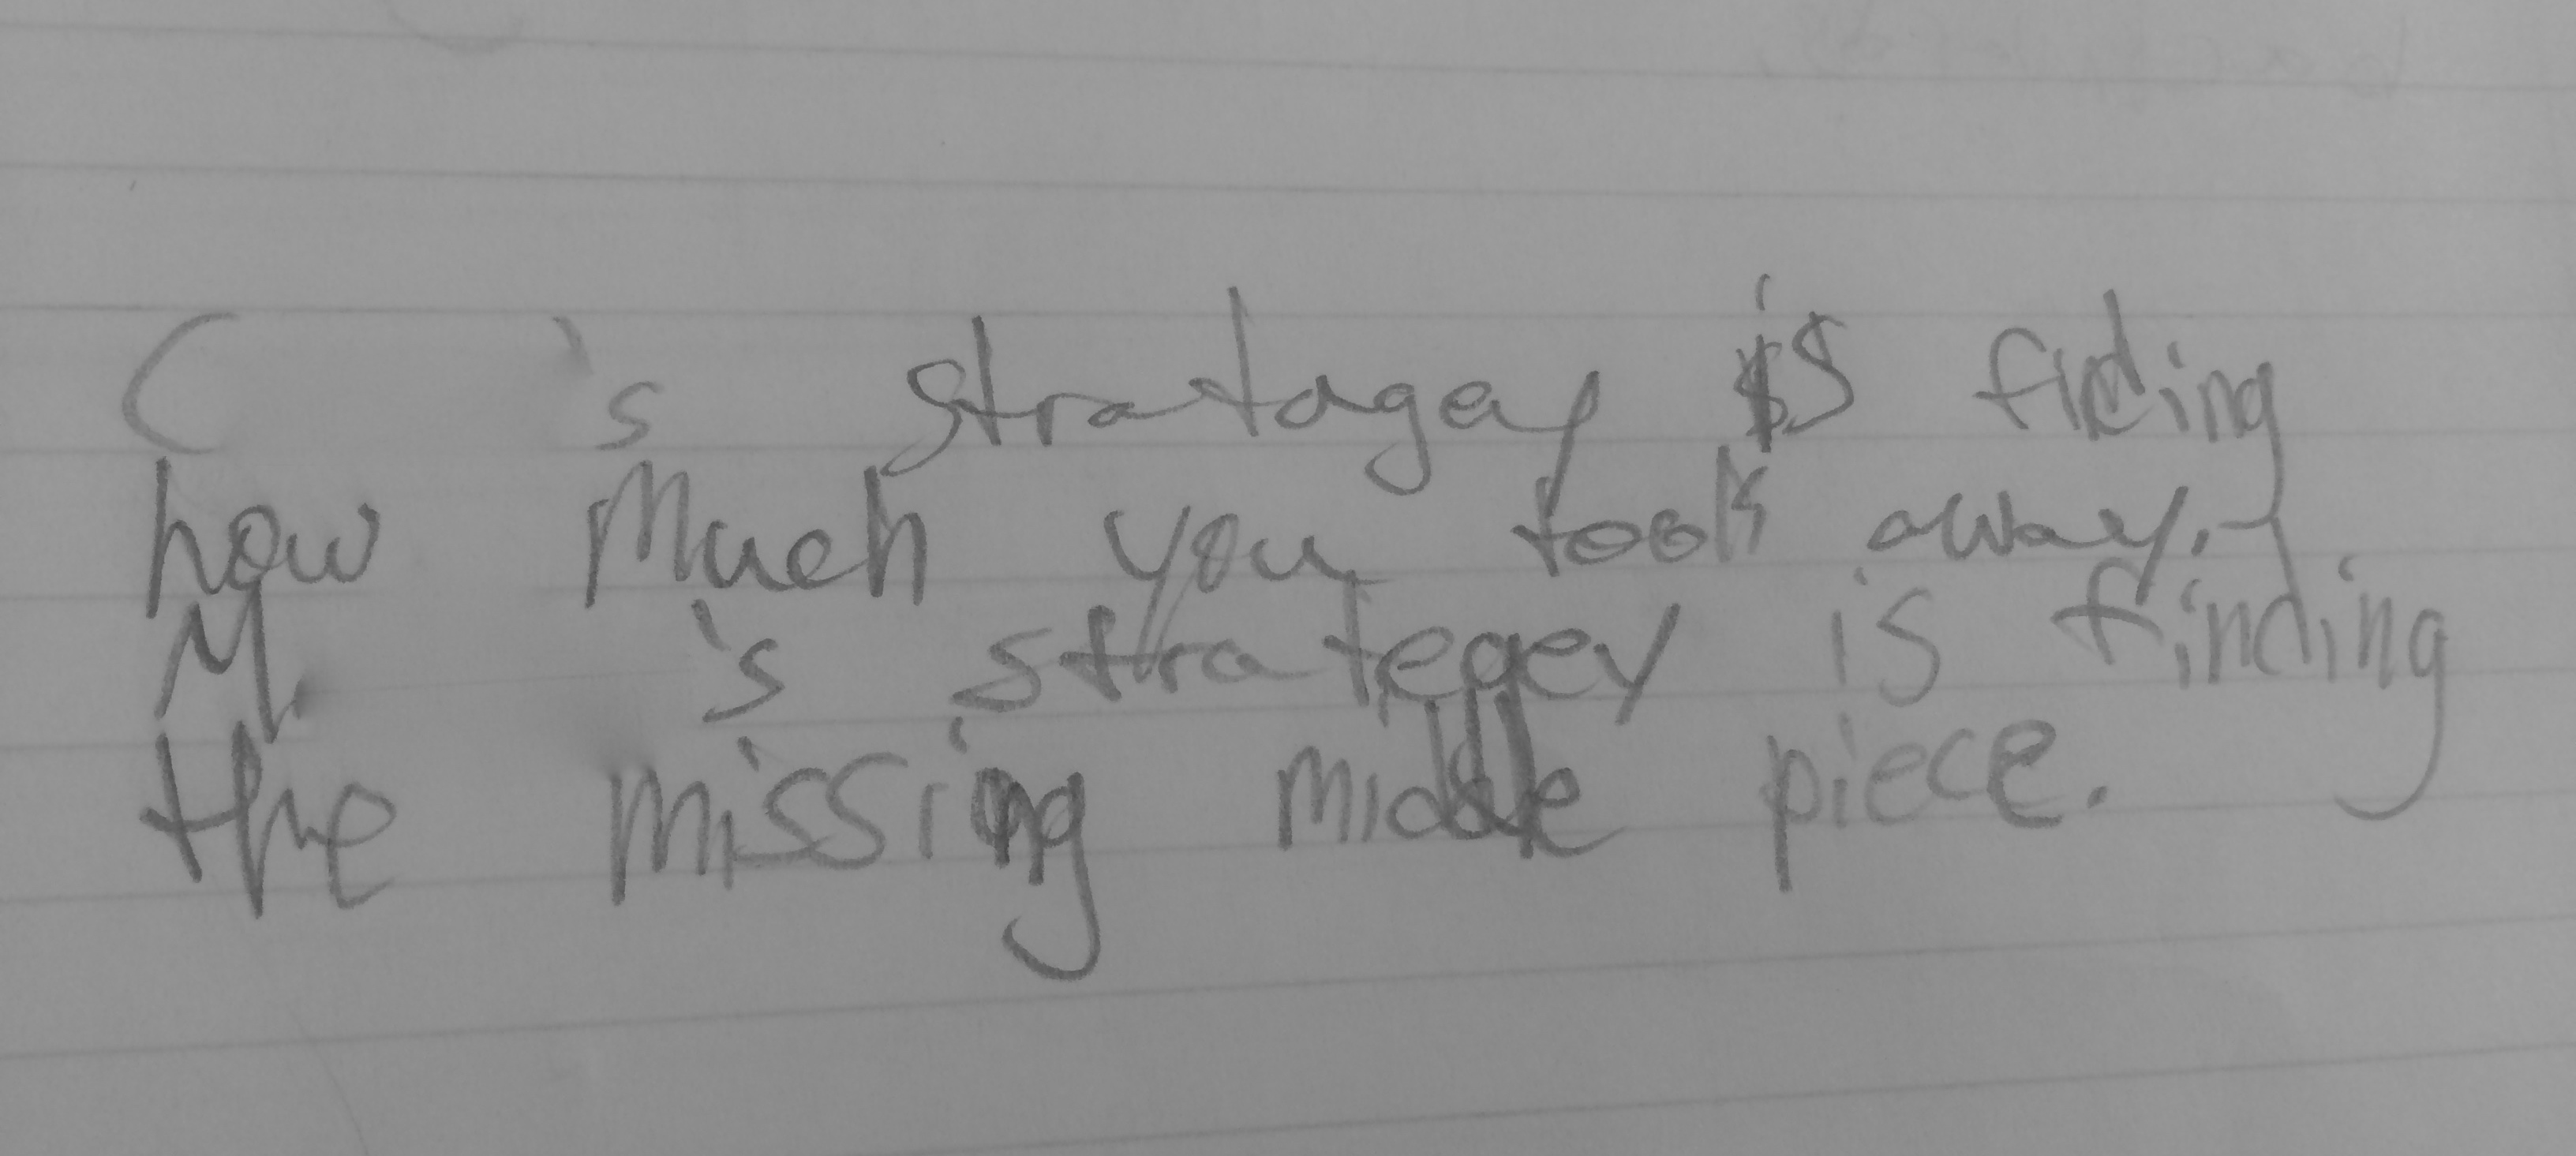 C 's stratagey is finding
how much you took away.
M. 's strategey is finding
the missing middle piece.